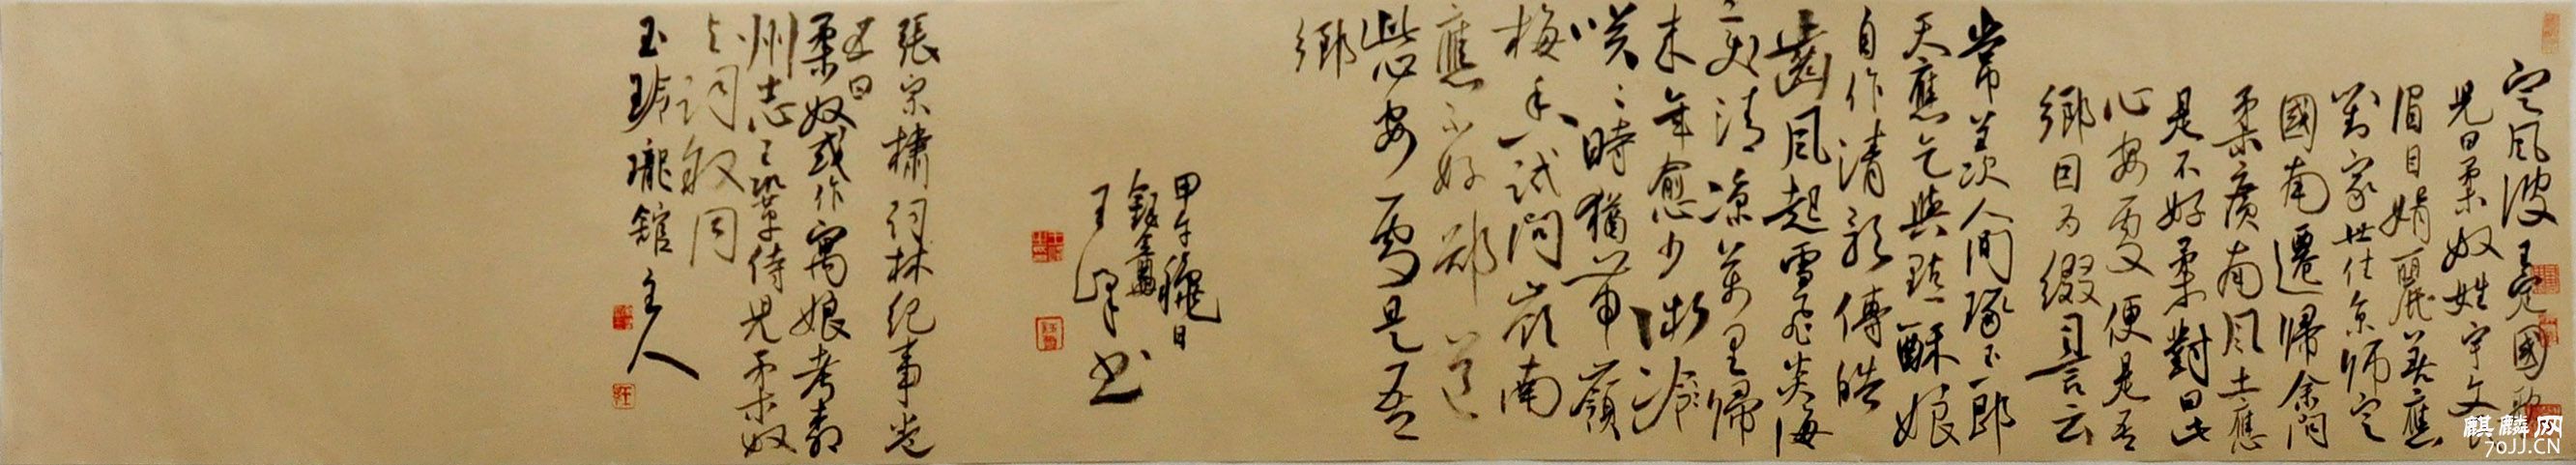 定風波 王定國歌
兒曰柔奴姓宇文氏
眉目娟麗善應
對家世住京師定
國南遷歸余問
柔廣南風土應
是不好柔對曰此
心安處便是吾
鄉因為綴詞云
常羨人間琢玉郎
天應乞與點酥娘
自作清歌傳皓
齒風起雪飛炎海
變清涼萬里歸
來年愈少微
笑笑時猶帶嶺
梅香試問嶺南
應不好却道
此心安處是吾
鄉
甲午
日
書
張宗橚詞林紀事卷
五曰
柔奴或作寓娘考青
州志之鞏侍兒柔奴
詞敘同
玉玲瓏館主人
麒麟网
70JJ.CN